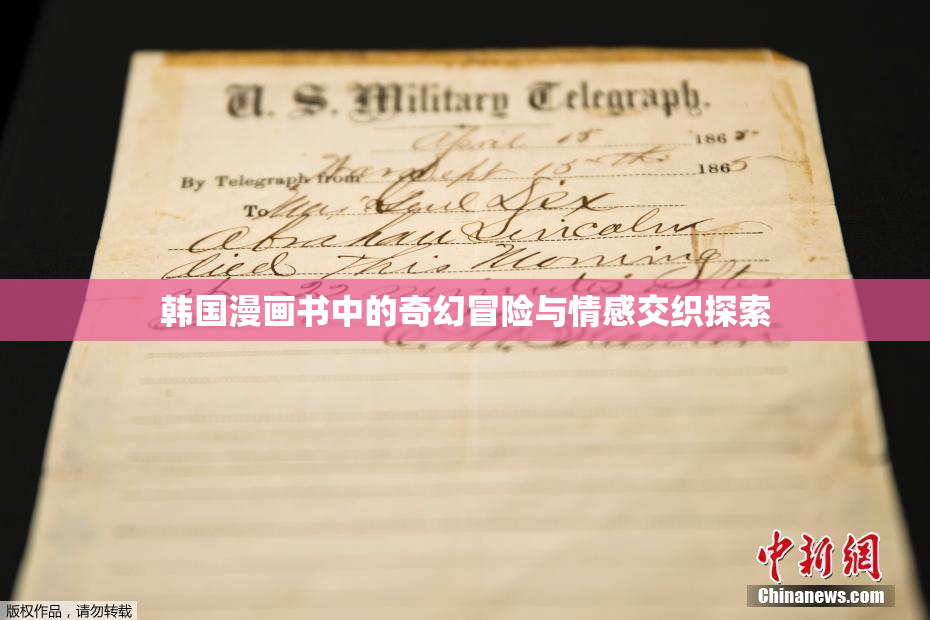 U. S. Military Telegraph.
April 15 1865
By Telegraph from War Dept 15th 1865
To Maj Genl Dix
Abraham Lincoln
died This Morning
at 22 minutes after
韩国漫画书中的奇幻冒险与情感交织探索
E. M. Stanton
中新网
Chinanews.com
版权作品，请勿转载